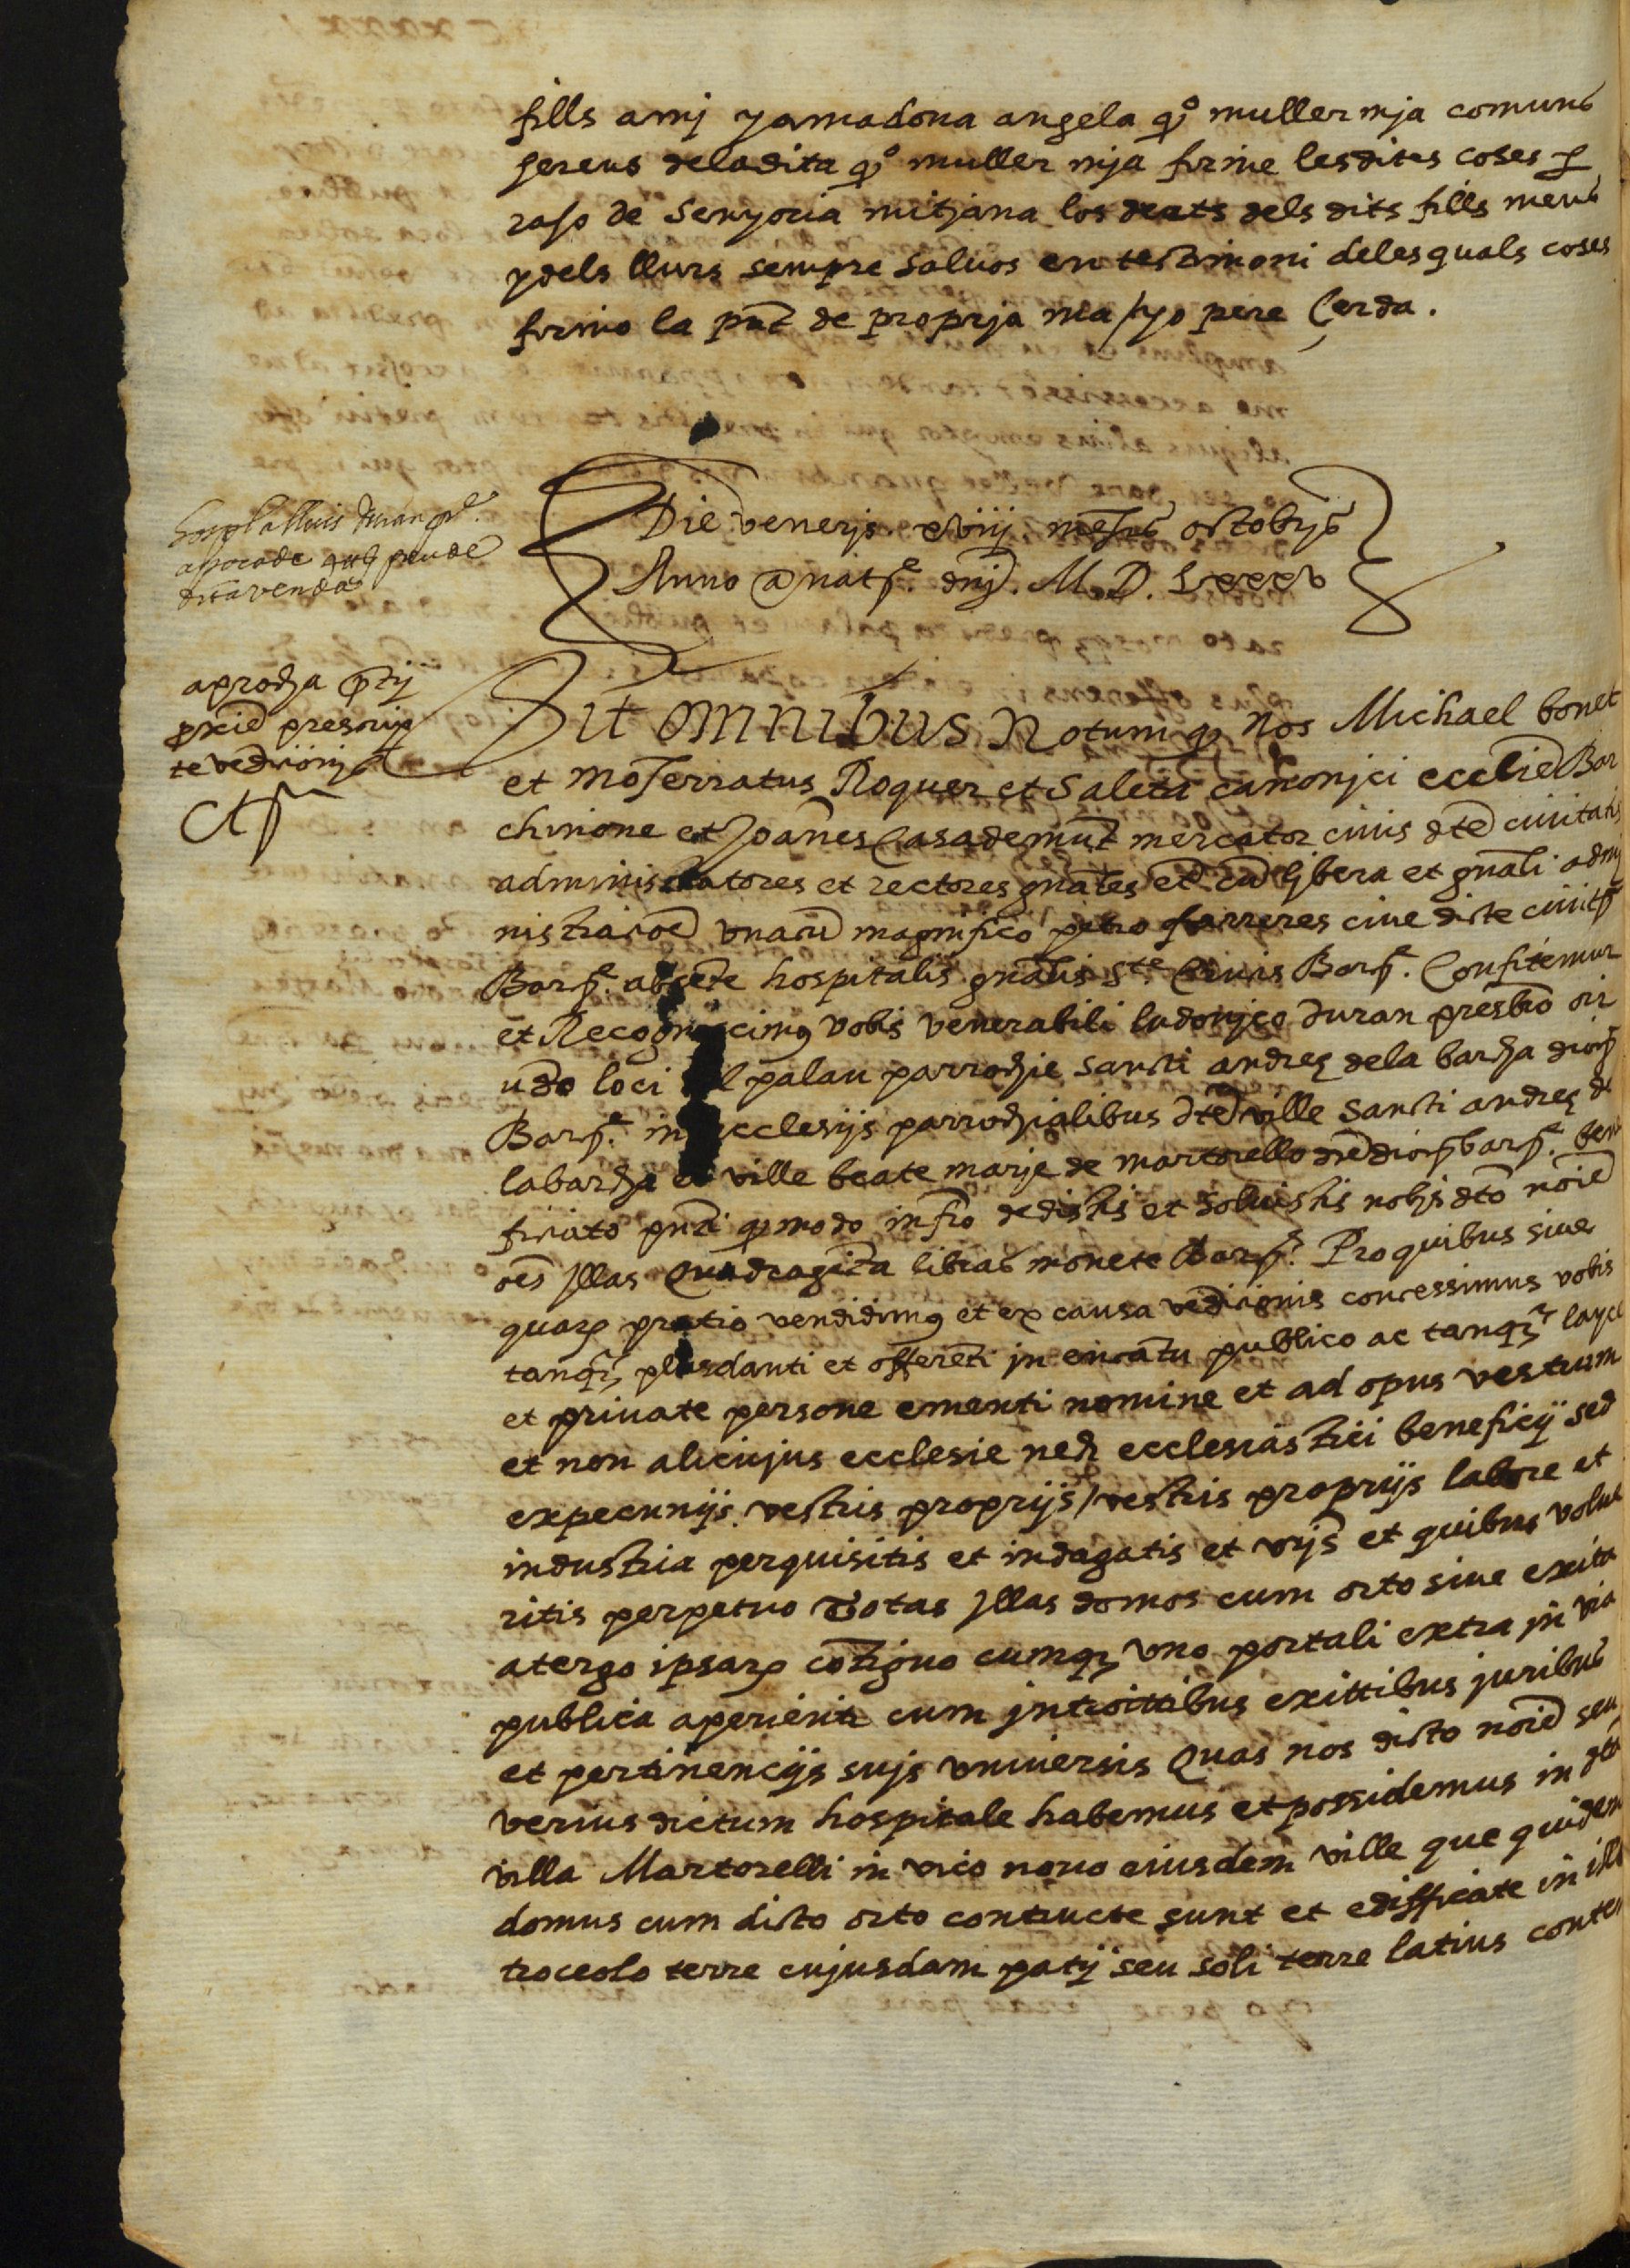 fills amj yamadona angela qº muller mja comuns
hereus deladita qº muller mja firme lesdites coses p
raho de Senyoria mitjana los drets dels dits fills meus
ydels llurs sempre saluos en testimoni delesquals coses
firmo la pnt de propria ma / yo pere Cerda.
Die veneris xviij mesis octobris
Anno a nat. dnj. M. D. Lxxxv
apocha
precij prescrip
te vedicionis
Sit omnibus Notum q Nos Michael bonet
et Moserratus Roquer et Saleta canonjci ecclie Bar
chinone et Joanes Casademunt mercator ciuis dte ciuitatis
administratores et rectores gnales et cu libera et gnali admj
nistracioe vnacu magnifico petro ferreres ciue dicte ciuit
Bar. absete hospitalis gnalis Ste Crucis Bar. Confitemur
et Recognoscimus vobis venerabili ludouico duran presbro ori
udo loci del palau parrochie Sancti andree dela barcha dioc
Bar. in ecclesijs parrochialibus dte ville Sancti andree de
labarcha et ville beate marje de martorello dte dioc bar. bene
ficiato pnti q modo infro dedistis et soluistis nobis dto noie
oes Jllas Quadraginta libras monete Bar. Pro quibus siue
quar pretio vendidimus et ex causa vedicionis concessimus vobis
tanq plusdanti et offereti jn encatu publico ac tanq layce
et priuate persone ementi nomine et ad opus vestrum
et non alicujus ecclesie nech ecclesiastici beneficij sed
expecunijs vestris proprijs / vestris proprijs labore et
industria perquisitis et indagatis et vris et quibus volue
ritis perpetuo Totas Jllas domos cum orto siue exitu
atergo ipsar cotiguo cumq vno portali extra jn via
publica aperienti cum jntroitibus exitibus juribus
et pertinencijs sujs vniuersis Quas nos dicto noie seu
verius dictum hospitale habemus et possidemus in dta
villa Martorelli in vico nouo eiusdem ville que quidem
domus cum dicto orto contructe sunt et edifficate in illo
troceolo terre cujusdam patij seu soli terre latius conten